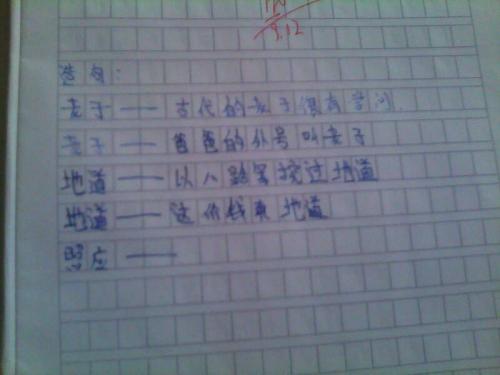 9.12
造句:
老子——古代的老子很有学问.
老子——爸爸的外号叫老子
地道——以八路军挖过地道
地道——这价钱真地道
照应——